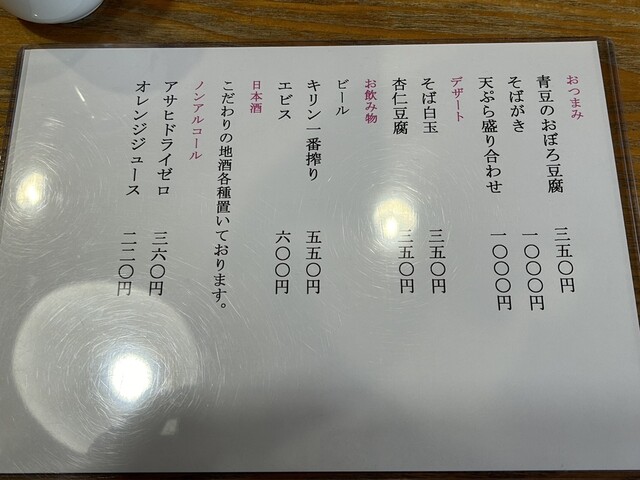 おつまみ
青豆のおぼろ豆腐 三五〇円
そばがき 一〇〇〇円
天ぷら盛り合わせ 一〇〇〇円
デザート
そば白玉 三五〇円
杏仁豆腐 三五〇円
お飲み物
ビール
キリン一番搾り 五五〇円
エビス 六〇〇円
日本酒
こだわりの地酒各種置いております。
ノンアルコール
アサヒドライゼロ 三六〇円
オレンジジュース 二二〇円